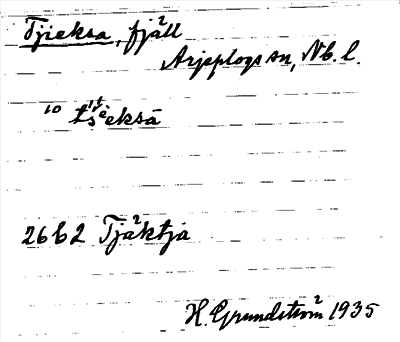 Tjieksa, fjäll
Arjeplogs sn, Nb. l.
10
26 b 2 Tjäktja
H. Grundström 1935